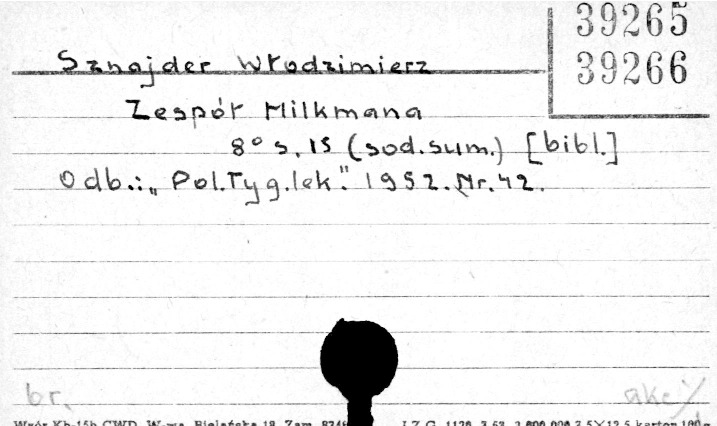 39265
39266
Sznajder Włodzimierz
Zespół Milkmana
8° s. 15 (sod.sum.) [bibl.]
Odb.: „Pol.Tyg.lek." 1952. Nr. 42.
br. akc
Wzór Kb-15b CWD, W-wa, Bielańska 18, Zam. L.Z.G. 1120. 3.53. 7,5×12,5 karton